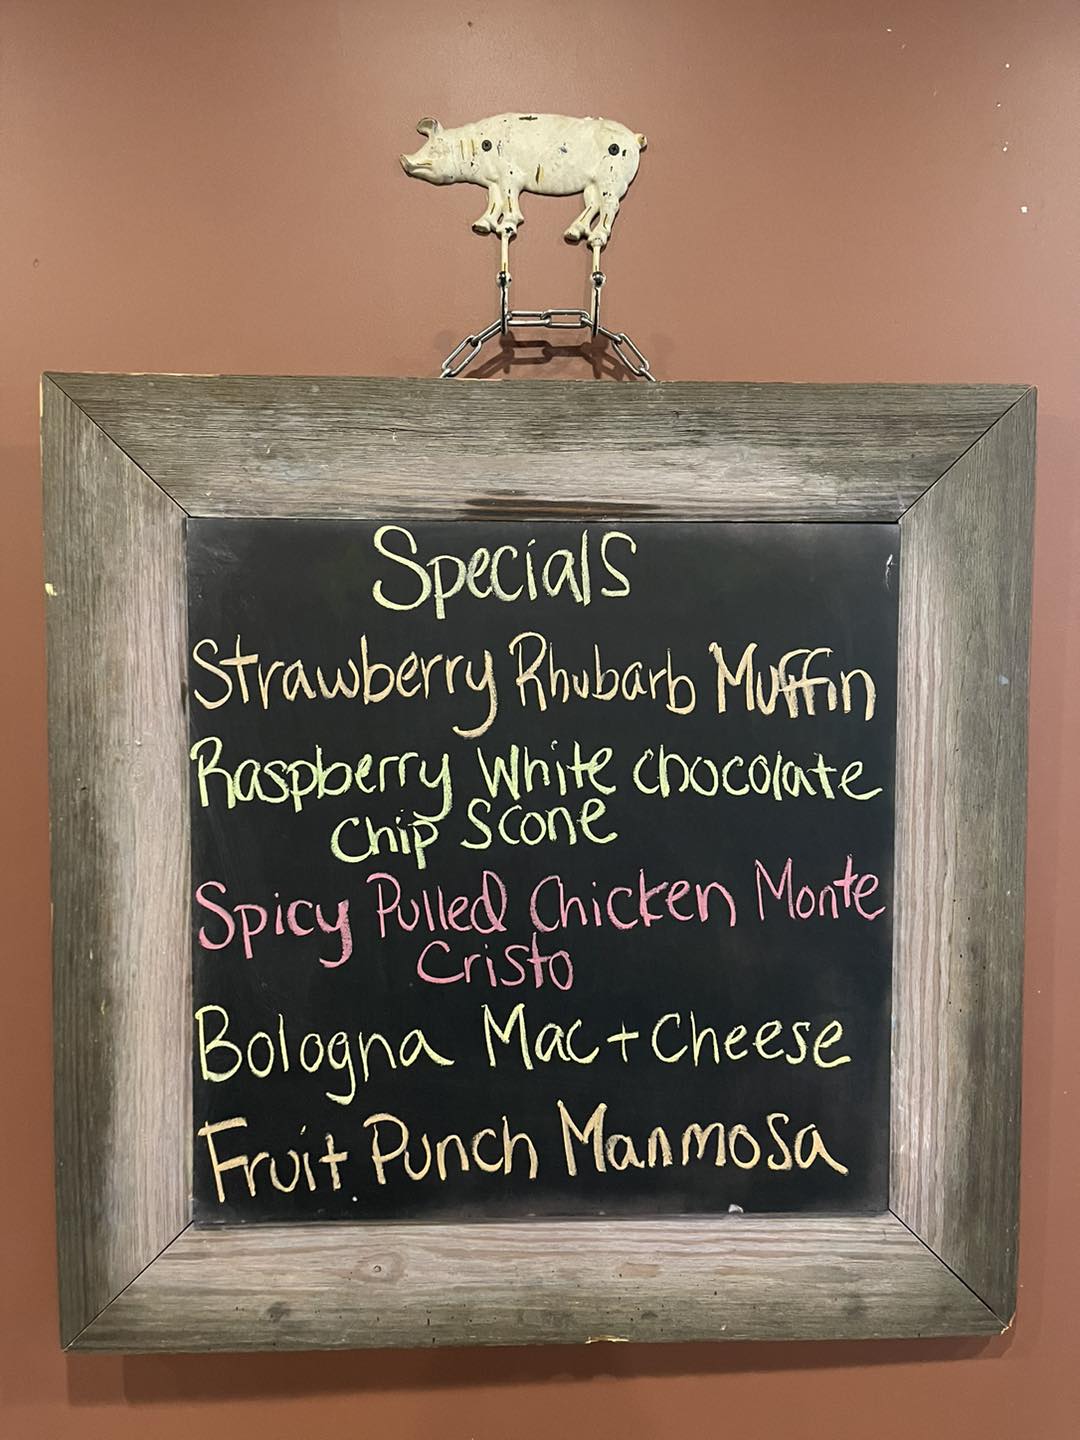 Specials
Strawberry Rhubarb Muffin
Raspberry White chocolate
Chip Scone
Spicy Pulled Chicken Monte
Cristo
Bologna Mac + Cheese
Fruit Punch Manmosa